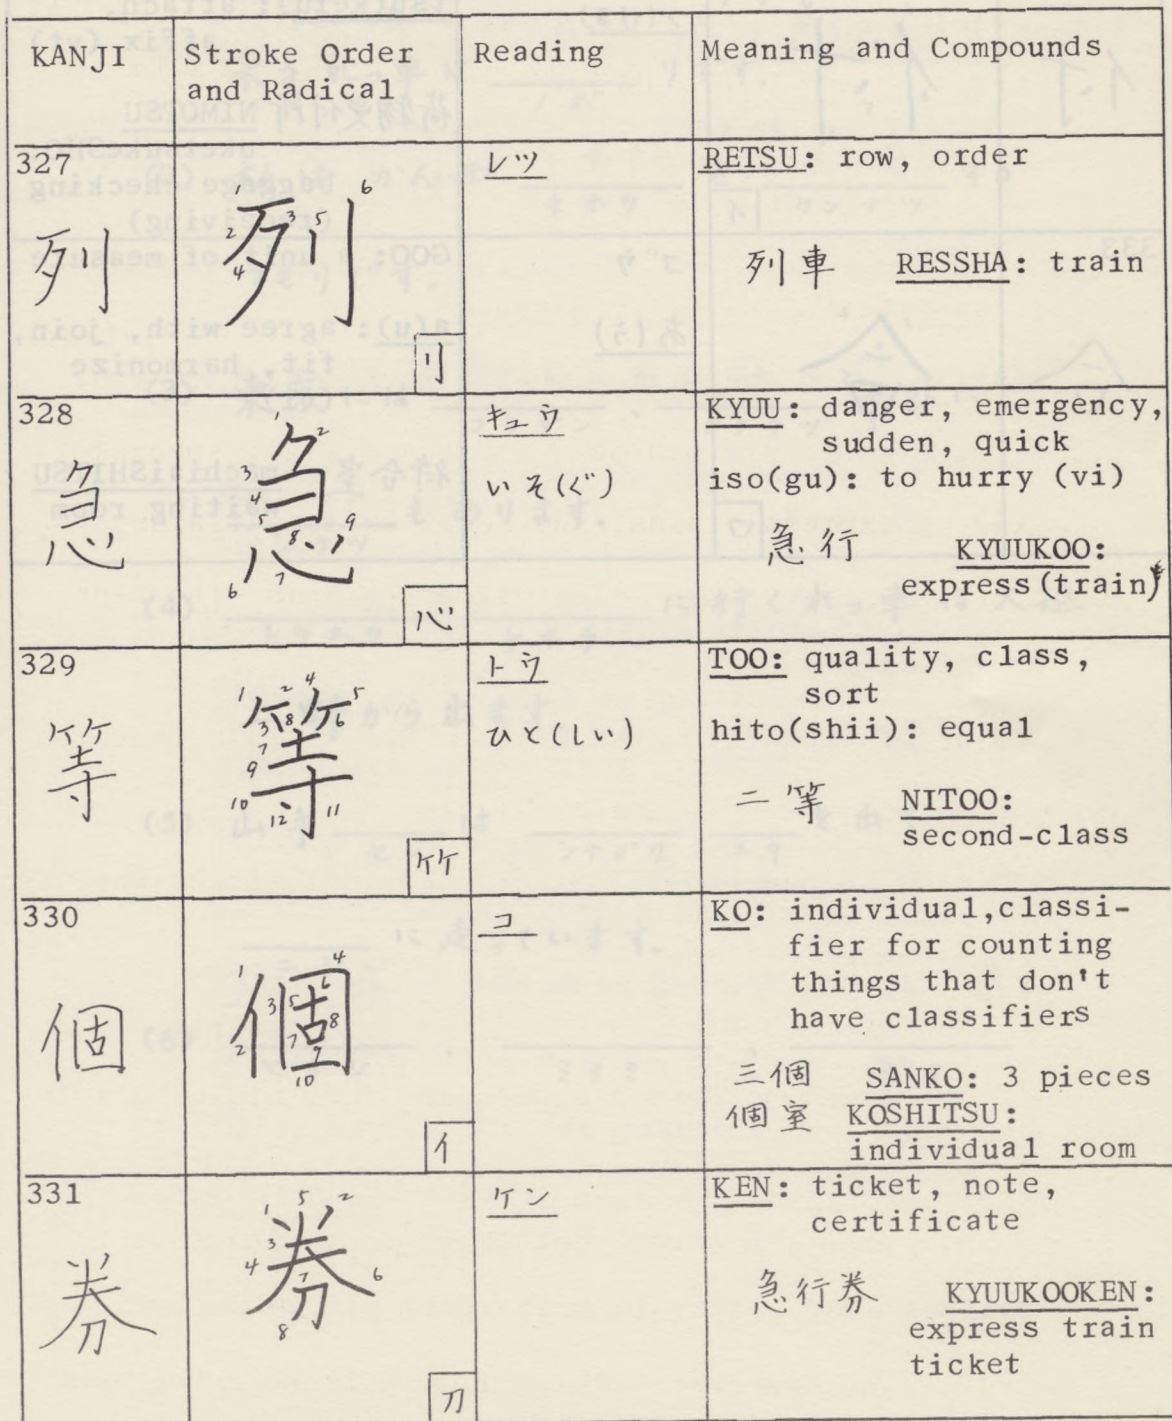 KANJI
Stroke Order
and Radical
Reading
Meaning and Compounds
327
列
列
1 2 3 4 5 6
刂
レツ
RETSU: row, order
列車 RESSHA: train
328
急
急
1 2 3 4 5 6 7 8 9
心
キュウ
いそ(ぐ)
KYUU: danger, emergency,
sudden, quick
iso(gu): to hurry (vi)
急行 KYUUKOO:
express (train)
329
等
等
1 2 3 4 5 6 7 8 9 10 11 12
竹
トウ
ひと(しい)
TOO: quality, class,
sort
hito(shii): equal
二等 NITOO:
second-class
330
個
個
1 2 3 4 5 6 7 8 9 10
亻
コ
KO: individual,classi-
fier for counting
things that don't
have classifiers
三個 SANKO: 3 pieces
個室 KOSHITSU:
individual room
331
券
券
1 2 3 4 5 6 7 8
刀
ケン
KEN: ticket, note,
certificate
急行券 KYUUKOOKEN:
express train
ticket